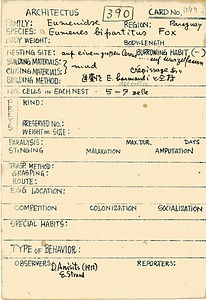 ARCHITECTUS 390 CARD No. 1044
FAMILY: Eumenidae REGION: Paraguay
SPECIES: Eumenes bipartitus Fox
BODY WEIGHT: BODY-LENGTH
NESTING SITE: auf einem BURROWING HABIT (-)
BUILDING MATERIALS: } mud
CLOSING MATERIALS:
BUILDING METHOD: E.
NO. CELLS IN EACH NEST 5-7 zelle
PREYS KIND:
PRESERVED NO.:
WEIGHT OR SIZE:
PARALYSIS: MAX. DUR. DAYS
STINGING MALAXATION AMPUTATION
TRASP. METHOD:
GRASPING:
ROUTE:
EGG LOCATION:
COMPETITION COLONIZATION SOCIALIZATION
SPECIAL HABITS:
TYPE OF BEHAVIOR:
OBSERVERS: D. Anisits REPORTERS:
E. Strand